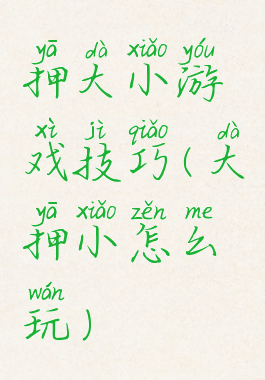 yā dà xiǎo yóu
押大小游
xì jì qiǎo dà
戏技巧(大
yā xiǎo zěn me
押小怎么
wán
玩)